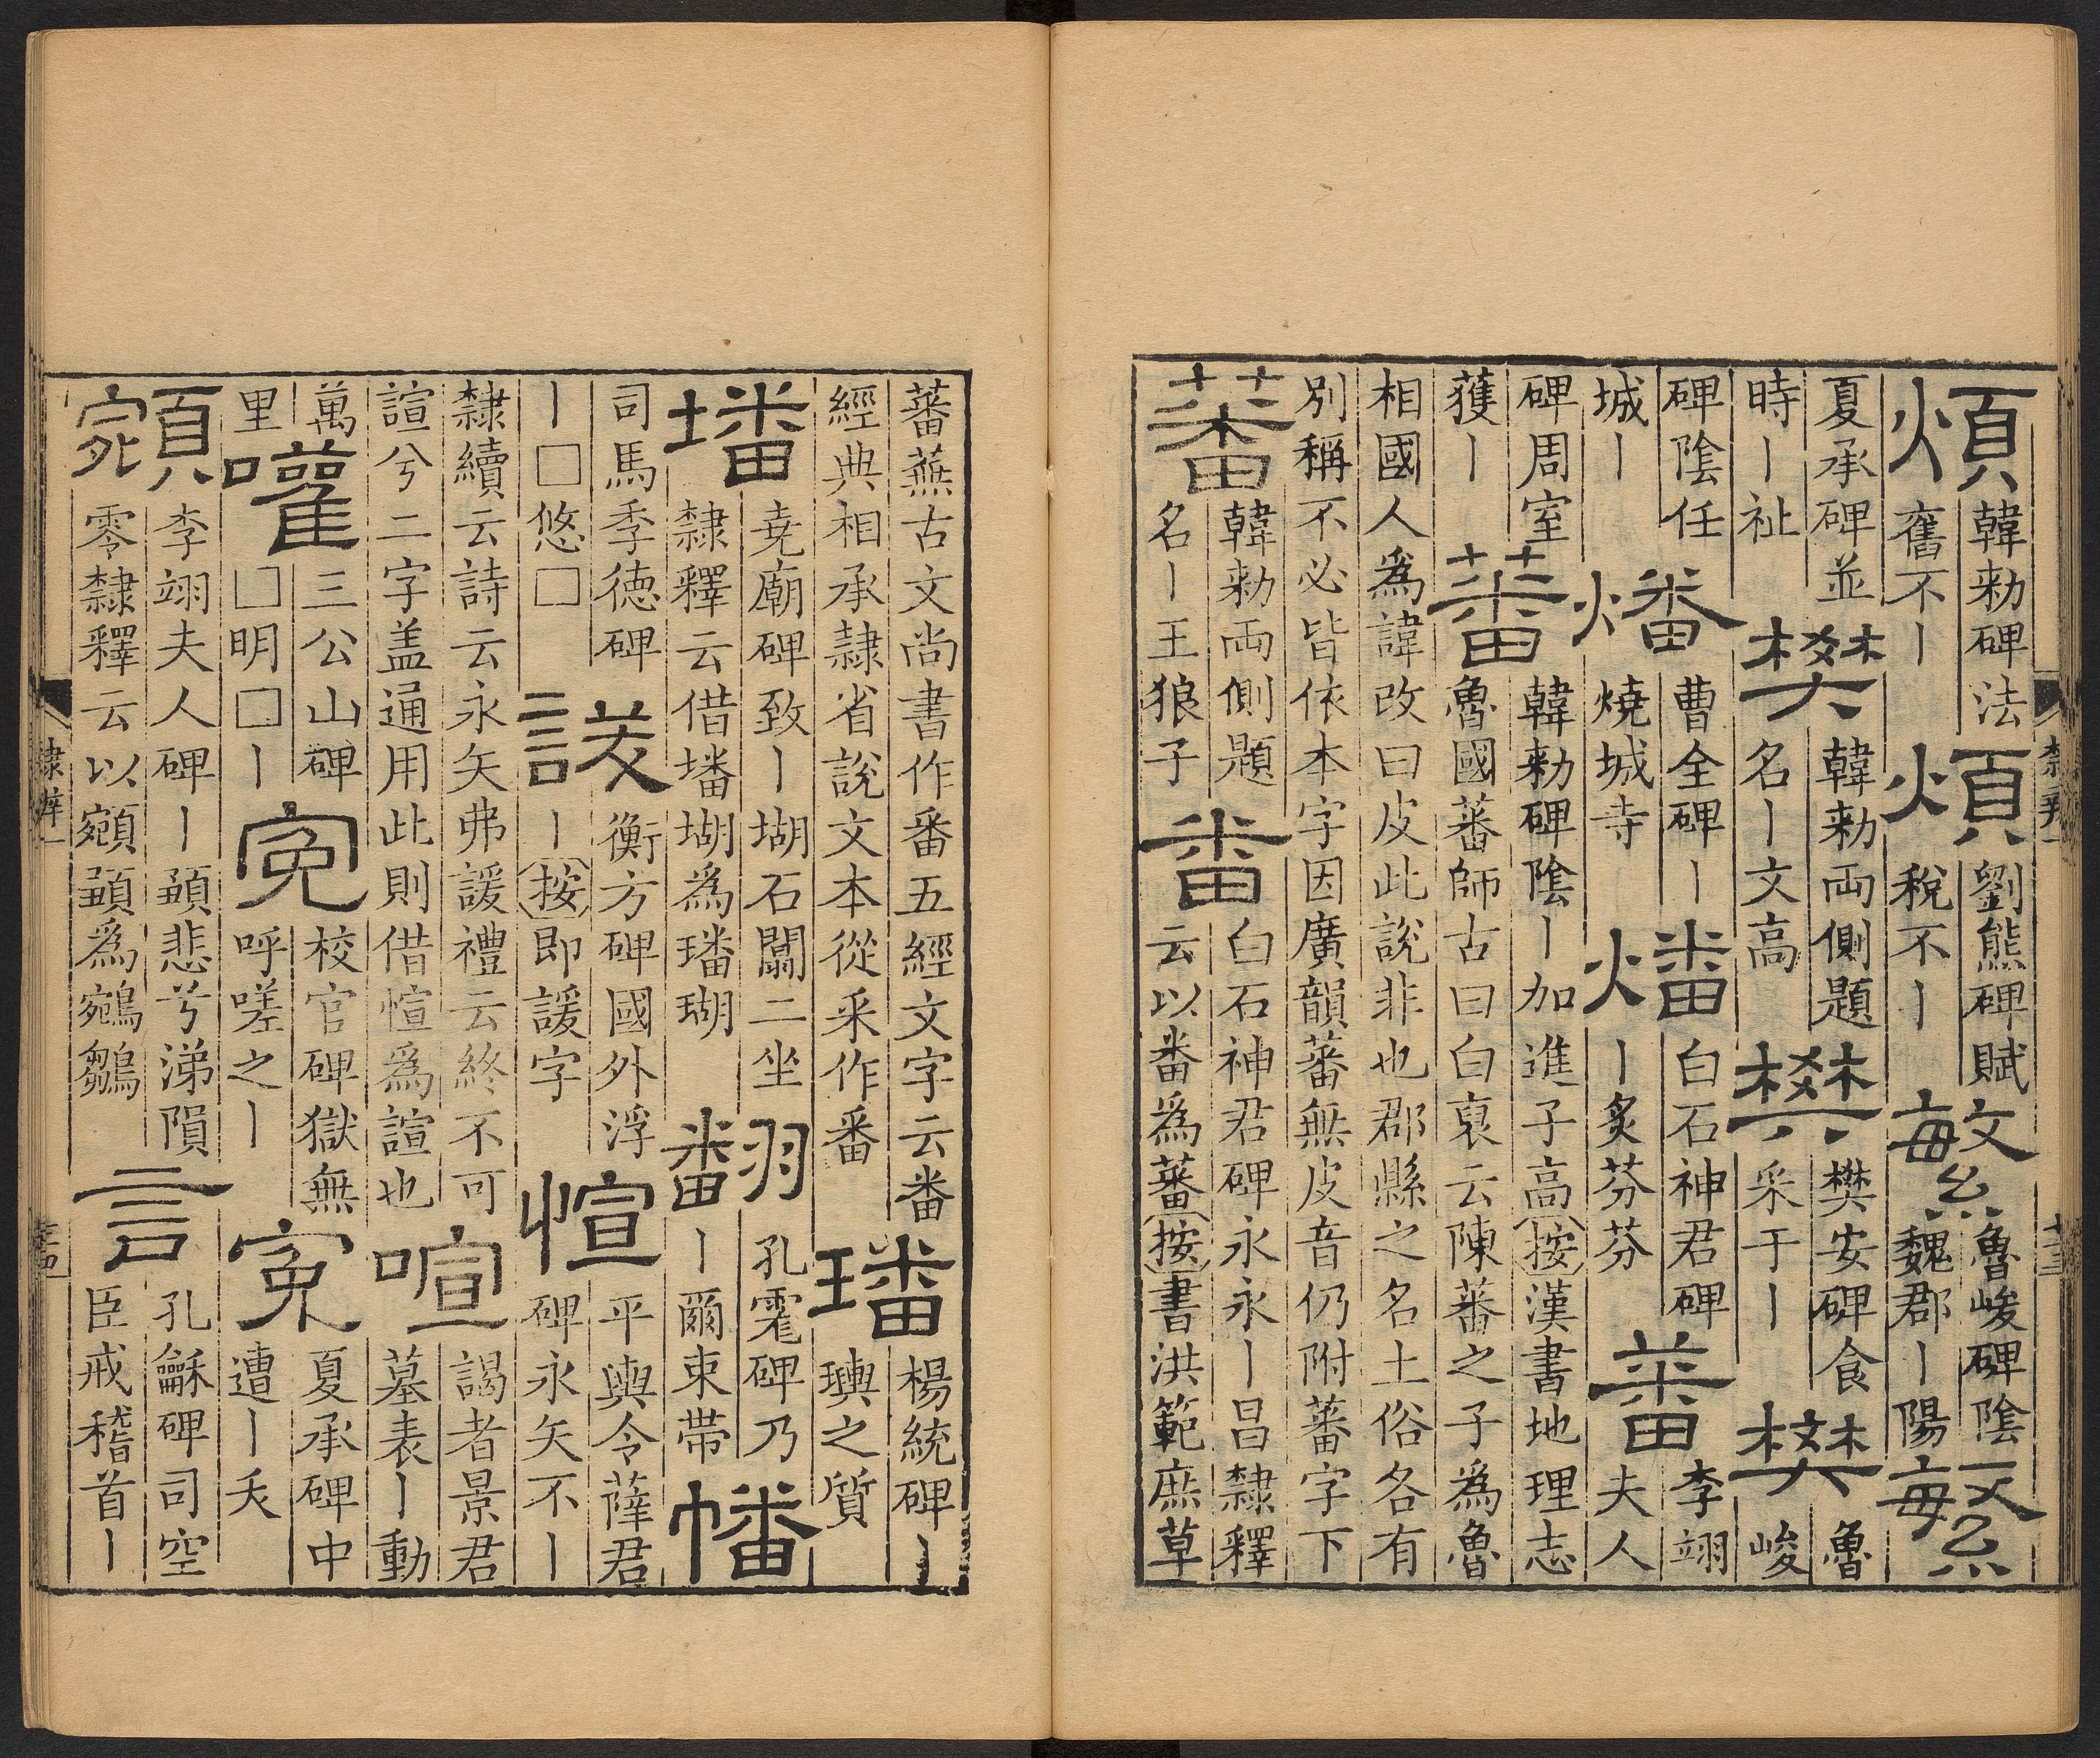 煩韓勑碑法舊不丨煩劉熊碑賦稅不丨繁魯峻碑陰魏郡丨陽繁
夏承碑並時丨祉樊韓勑兩側題名丨文高樊樊安碑食采于丨樊魯峻
碑陰任城丨燔曹全碑丨燒城寺燔白石神君碑丨炙芬芬蕃李翊夫人
碑周室獲丨蕃韓勑碑陰丨加進子高按漢書地理志魯國蕃師古曰白裒云陳蕃之子爲魯
相國人爲諱改曰皮此說非也郡縣之名土俗各有別稱不必皆依本字因廣韻蕃無皮音仍附蕃字下
蕃韓勑兩側題名丨王狼子番白石神君碑永永丨昌隸釋云以番爲蕃按書洪範庶草
隸辨一
蕃蕪古文尚書作番五經文字云番經典相承隸省說文本從釆作番璠楊統碑丨璵之質
墦堯廟碑致丨瑚石闕二坐隸釋云借墦瑚爲璠瑚翻孔宙碑乃丨爾束帶幡
司馬季德碑丨□悠□諼衡方碑國外浮丨按即諼字愃平輿令薛君碑永矢不丨
隸續云詩云永矢弗諼禮云終不可諠兮二字盖通用此則借愃爲諠也喧謁者景君墓表丨動
萬里嚾三公山碑□明□丨冤校官碑獄無呼嗟之丨冤夏承碑中遭丨夭
李翊夫人碑丨悲兮涕隕零隸釋云以爲鵷鶵言孔龢碑司空臣戒稽首丨
隸辨一